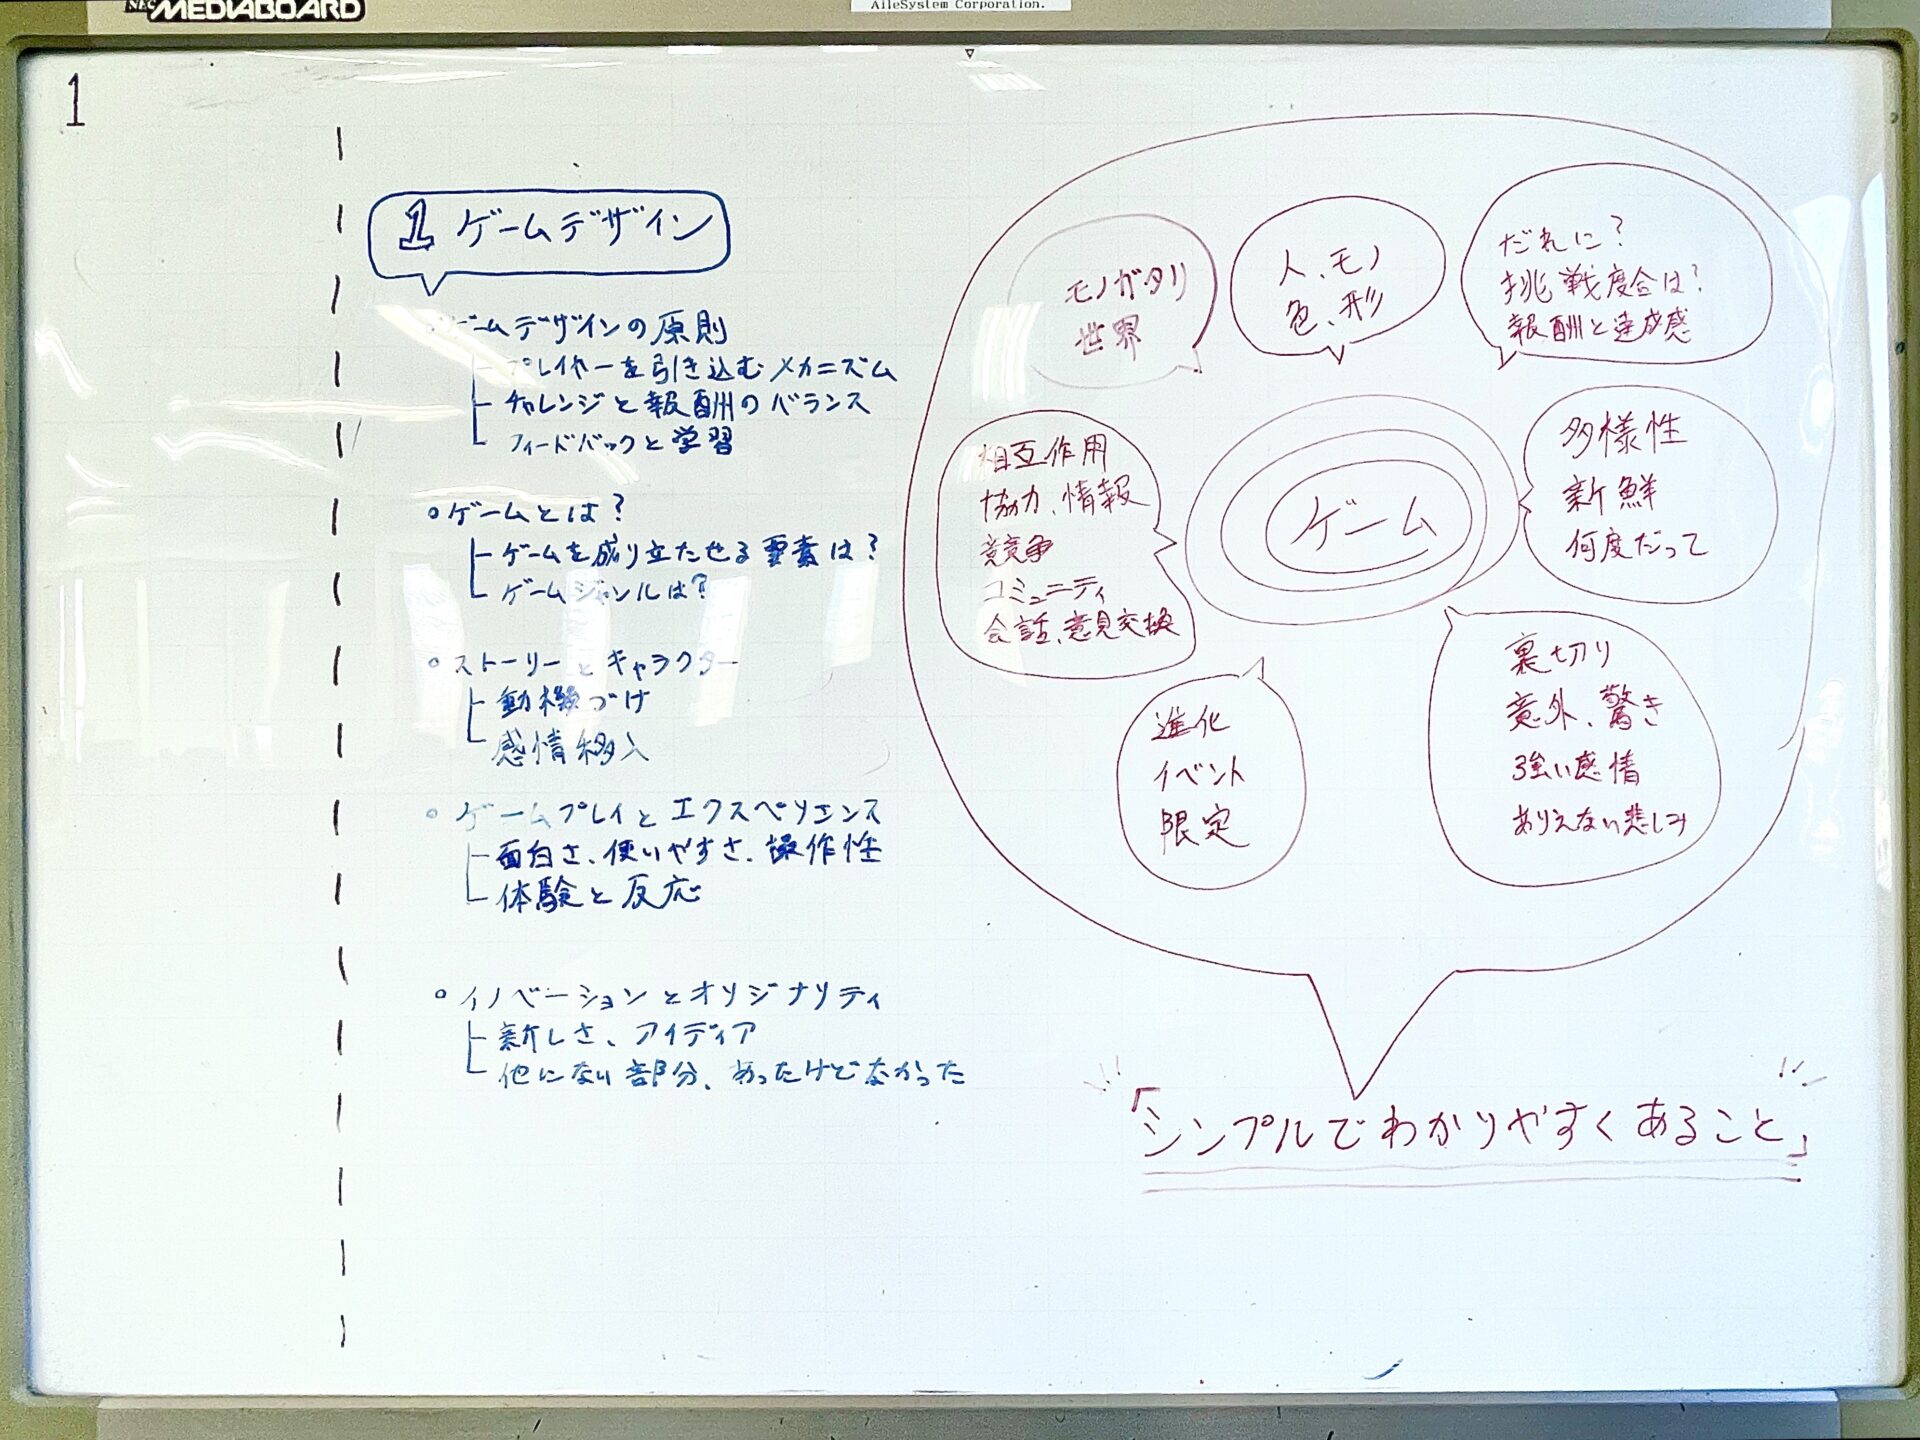 NEC MEDIABOARD
AlleSystem Corporation.
1
1 ゲームデザイン
ゲームデザインの原則
プレイヤーを引き込むメカニズム
チャレンジと報酬のバランス
フィードバックと学習
ゲームとは?
ゲームを成り立たせる要素は?
ゲームジャンルは?
ストーリーとキャラクター
動機づけ
感情移入
ゲームプレイとエクスペリエンス
面白さ、使いやすさ、操作性
体験と反応
イノベーションとオリジナリティ
新しさ、アイディア
他にない部分、あったけどなかった
モノガタリ
世界
人、モノ
色、形
だれに?
挑戦度合は?
報酬と達成感
相互作用
協力、情報
競争
コミュニティ
会話、意見交換
ゲーム
多様性
新鮮
何度だって
進化
イベント
限定
裏切り
意外、驚き
強い感情
ありえない悲しみ
「シンプルでわかりやすくあること」